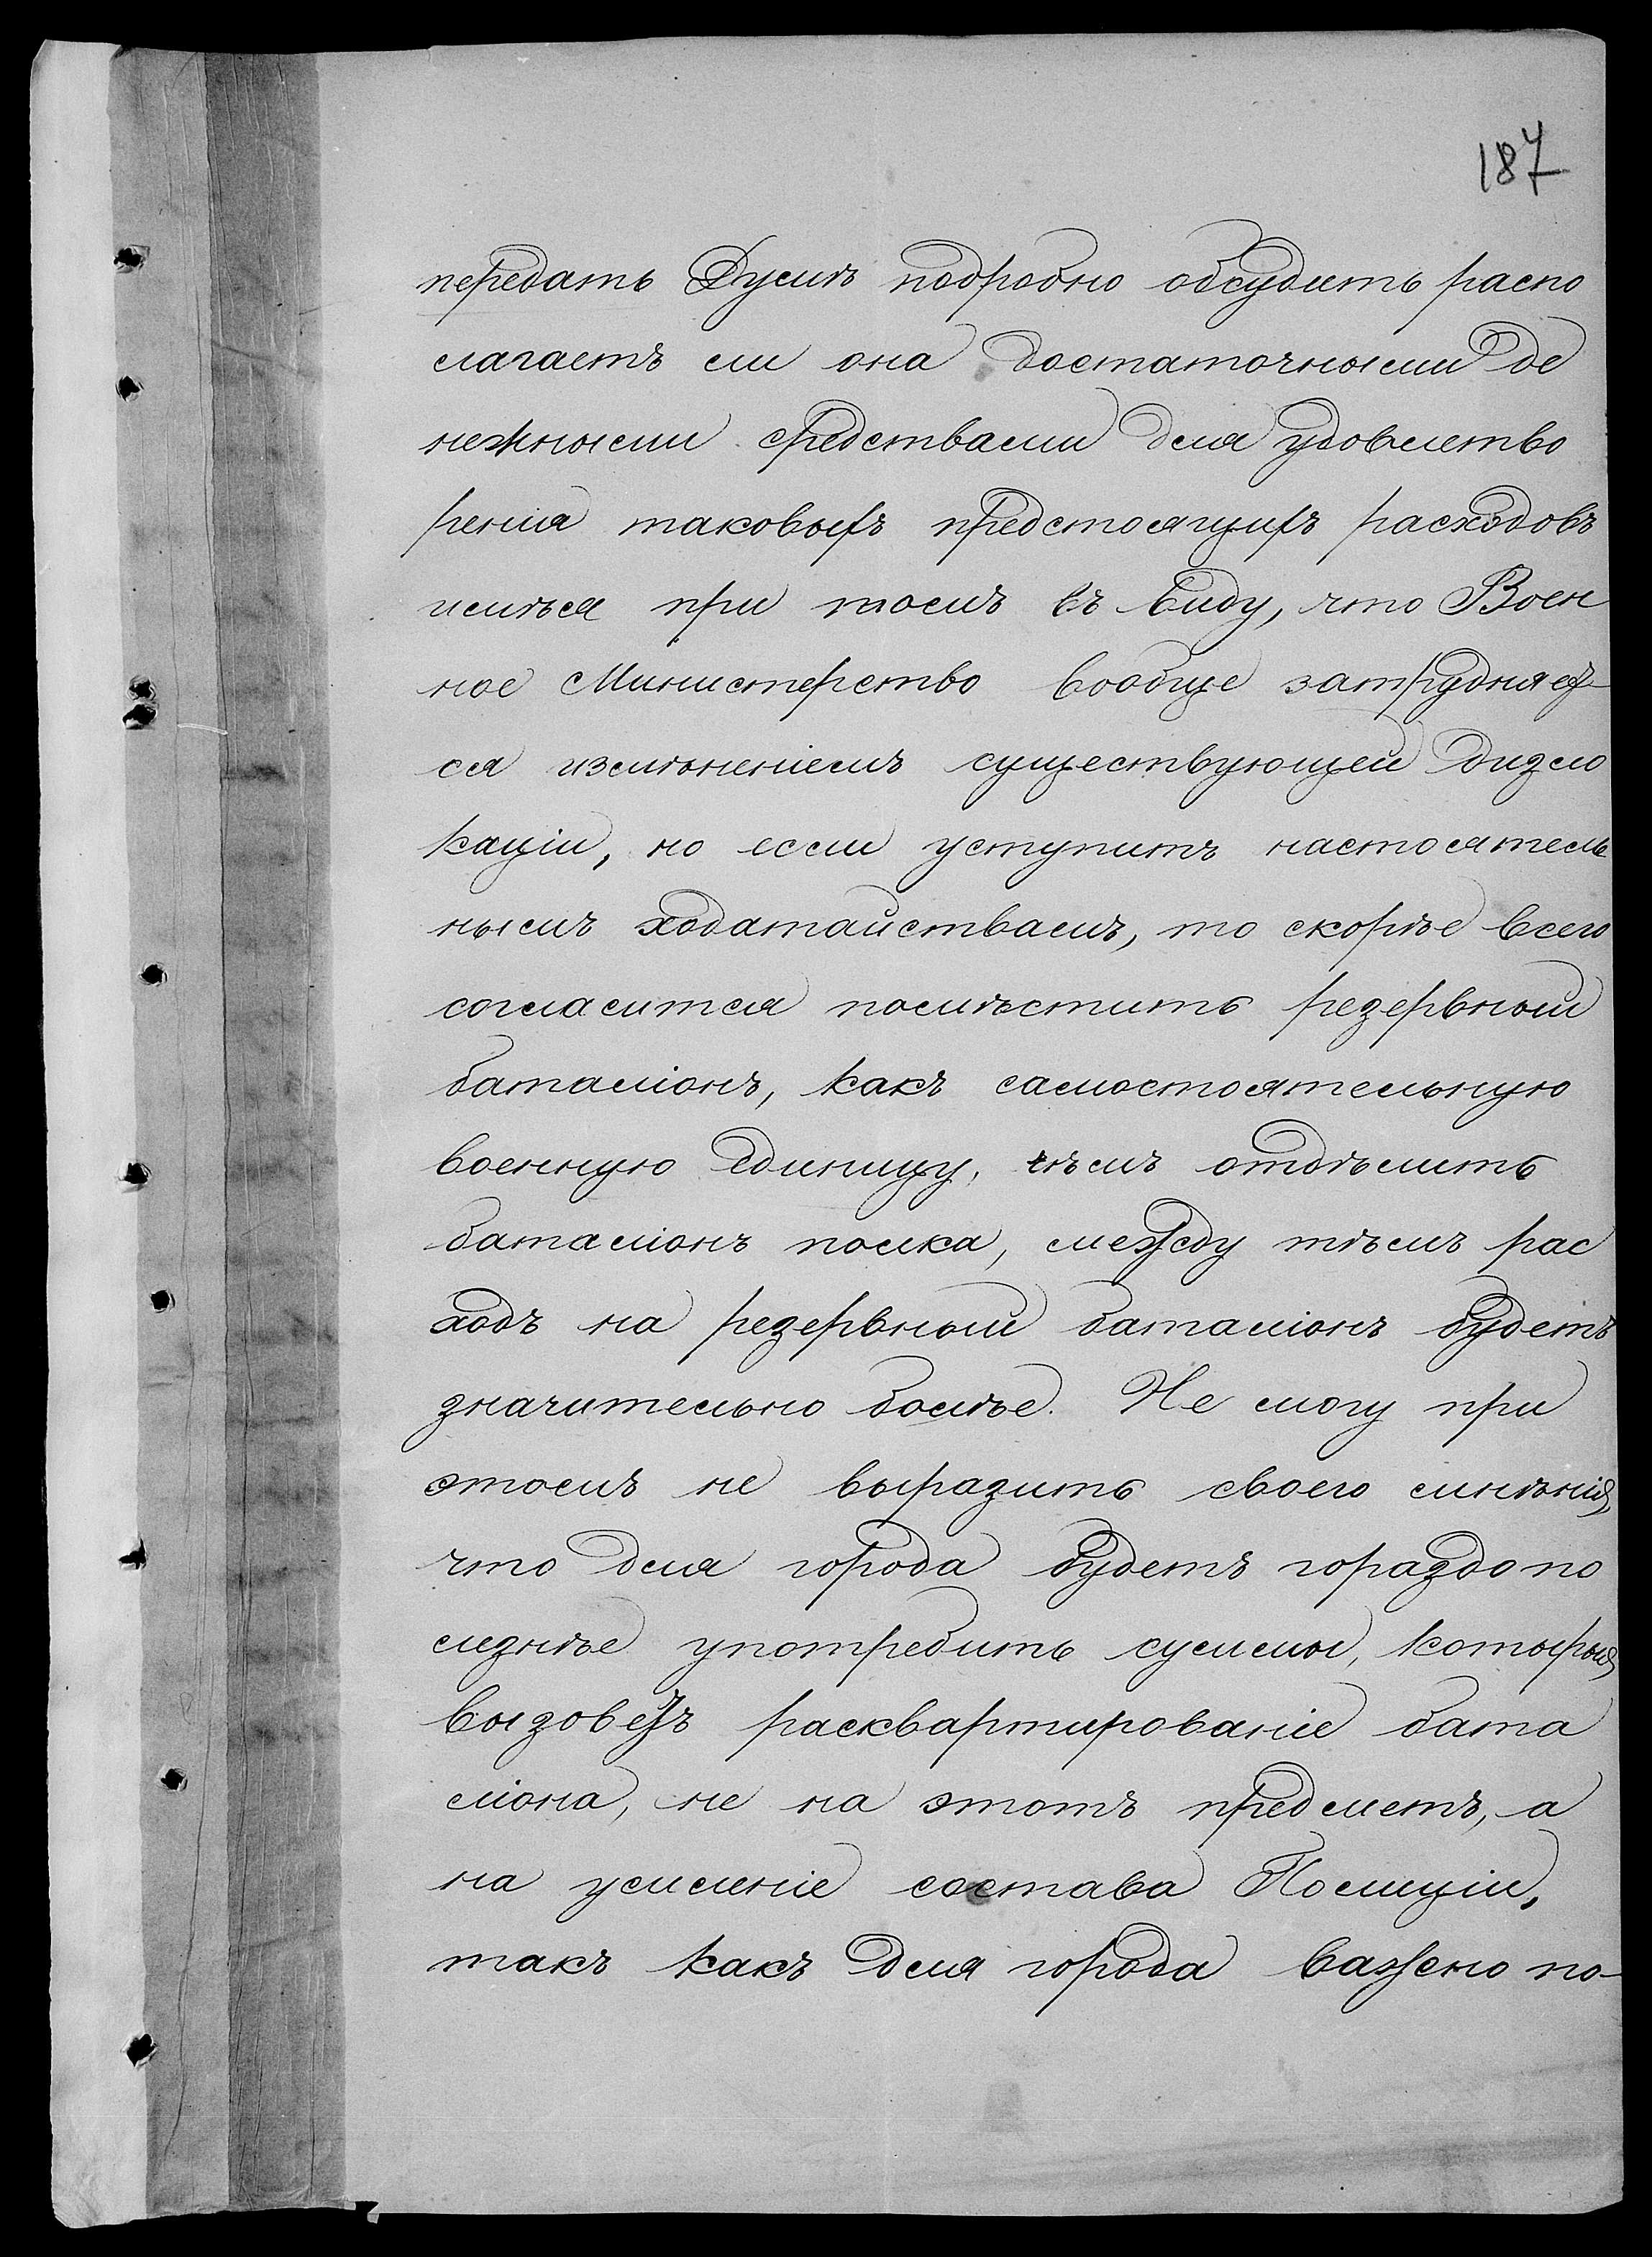 187
передать Думѣ подробно обсудить распо
лагаетъ ли она достаточными де
нежными средствами для удовлетво
ренія таковыхъ предстоящихъ расходовъ
имѣться при томъ въ виду, что Воен
ное Министерство вообще затрудняет-
ся измѣненіемъ существующей дизло
каціи, но если уступитъ настоятель
нымъ ходатайствамъ, то скорѣе всего
согласится помѣстить резервный
баталіонъ, какъ самостоятельную
военную единицу, чѣмъ отдѣлить
баталіонъ полка, между тѣмъ рас
ходъ на резервный баталіонъ будетъ
значительно болѣе. Не могу при
этомъ не выразить своего мнѣнія,
что для города будетъ гораздо по
лезнѣе употребить суммы, которыя
вызоветъ расквартированіе бата
ліона, не на этотъ предметъ, а
на усиленіе состава Полиціи,
такъ какъ для города важно по-